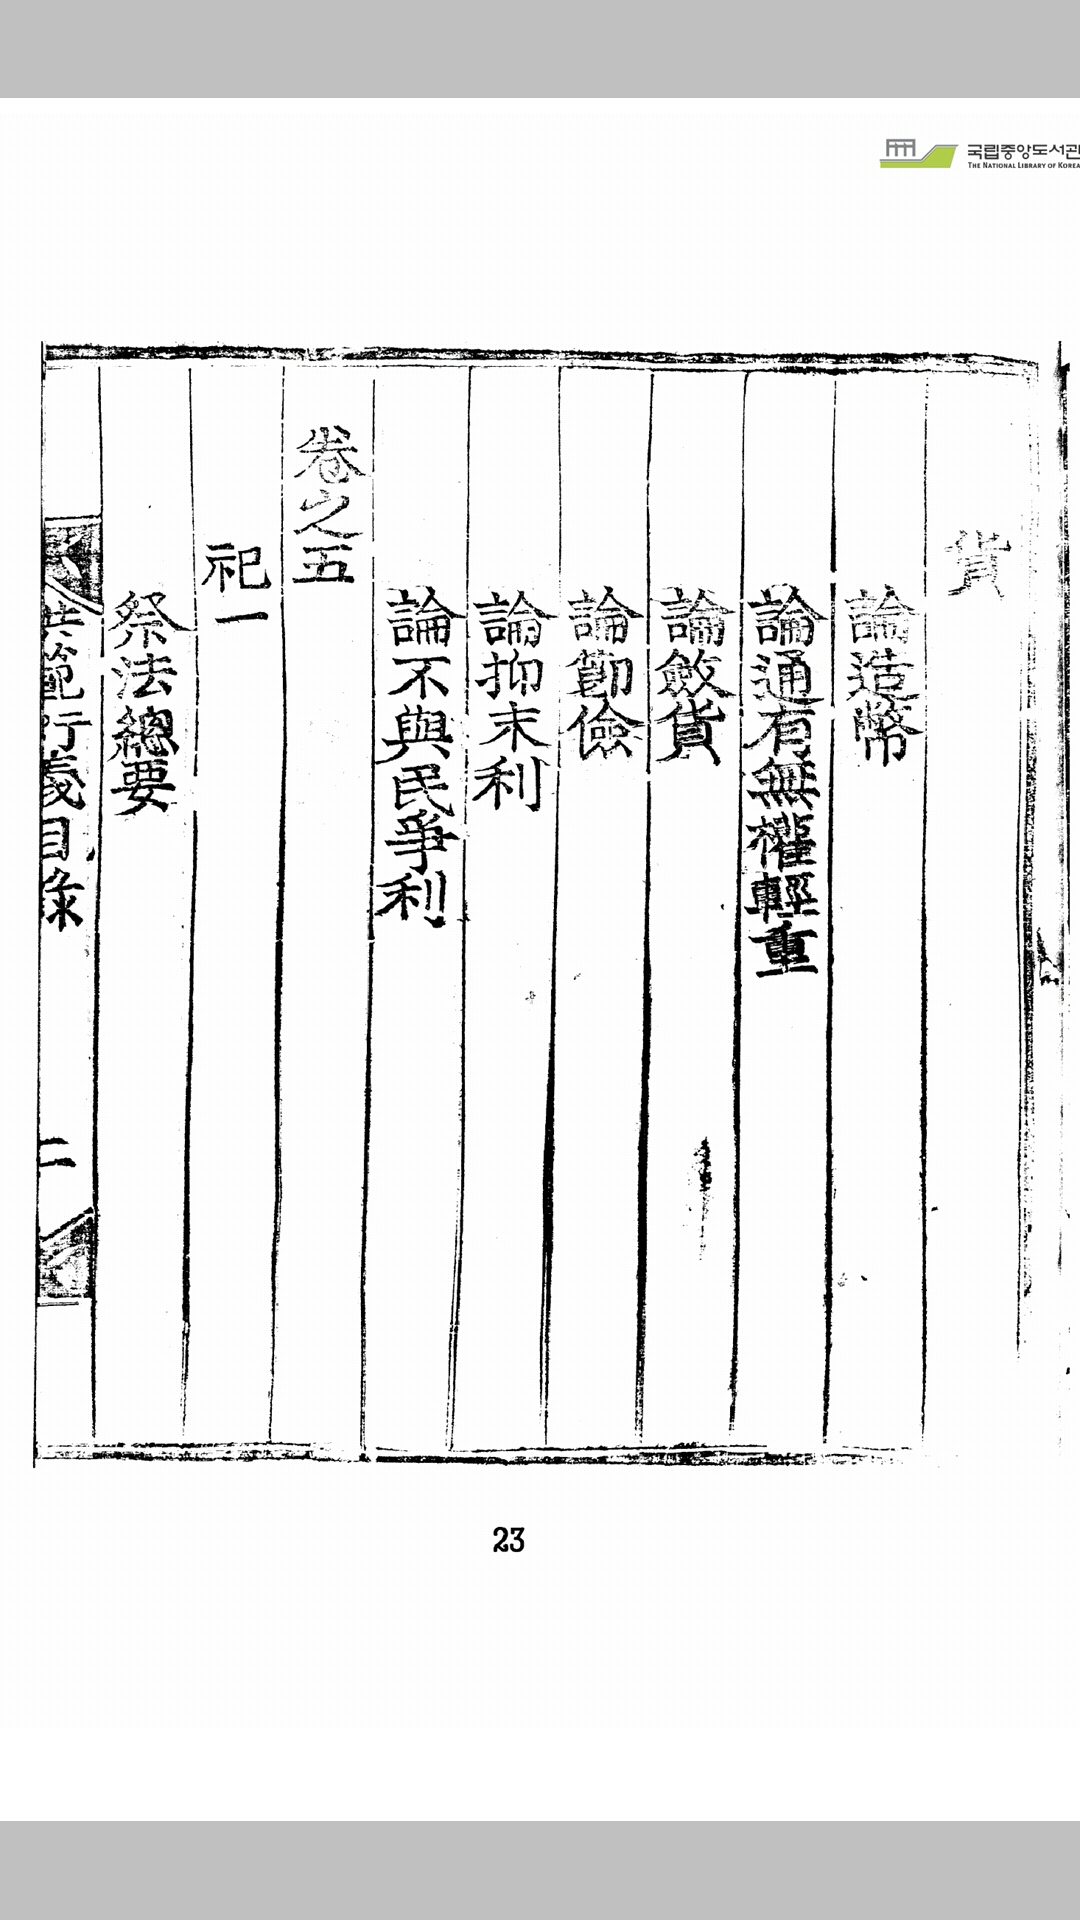 국립중앙도서관
THE NATIONAL LIBRARY OF KOREA
貨
論造幣
論通有無權輕重
論斂貨
論節儉
論抑末利
論不與民爭利
卷之五
祀一
祭法總要
洪範衍義目錄
二
23